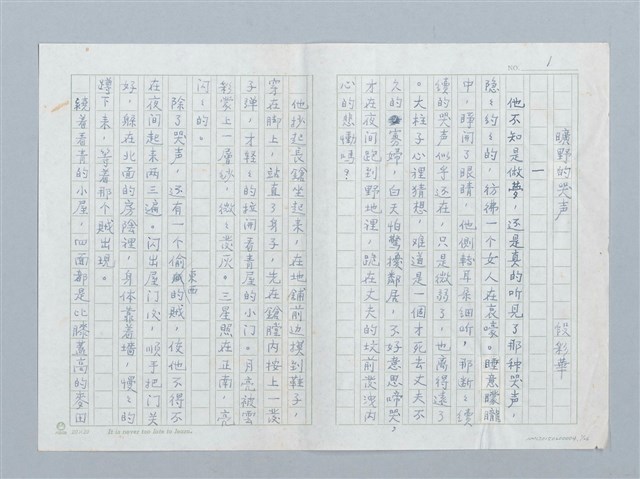 NO. 1
曠野的哭声
段彩華
一
他不知是做夢，还是真的听見了那种哭声，
隐々约々的，彷彿一个女人在哀嚎。睡意矇矓
中，睜開了眼睛，他側轉耳朵細听，那断々續
續的哭声似乎还在，只是微弱了，也离得遠了
。大柱子心裡猜想，难道是一个才死去丈夫不
久的寡婦，白天怕驚擾鄰居，不好意思啼哭，
才在夜间跑到野地裡，跪在丈夫的坟前发洩内
心的悲慟嗎？
他抄起長鎗坐起來，在地舖前边摸到鞋子，
穿在脚上，站直了身子，先在鎗膛内按上一发
子弹，才輕々的拉闹看青屋的小门。月亮被雲
彩蒙上一層紗，微々发灰。三星照在正南，亮
闪々的。
除了哭声，还有一个偷東西的賊，使他不得不
在夜间起來两三遍。闪出屋门以后，順手把门关
好，躲在北面的房陰裡，身体靠着墙，慢々的
蹲下来，等着那个賊出現。
繞着看青的小屋，四面都是比膝蓋高的麥田